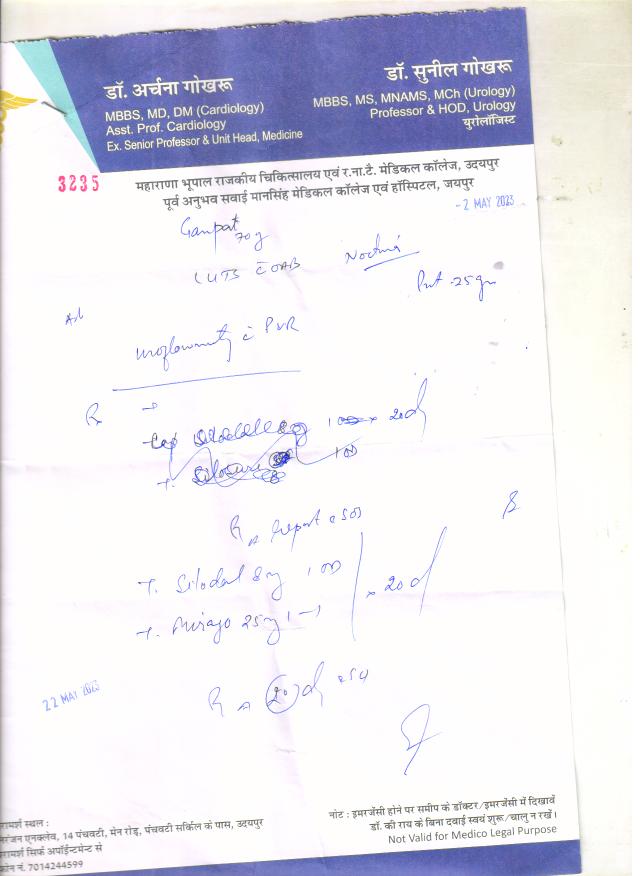 डॉ. अर्चना गोखरू
MBBS, MD, DM (Cardiology)
Asst. Prof. Cardiology
Ex. Senior Professor & Unit Head, Medicine
डॉ. सुनील गोखरू
MBBS, MS, MNAMS, MCh (Urology)
Professor & HOD, Urology
युरोलॉजिस्ट
3235
महाराणा भूपाल राजकीय चिकित्सालय एवं र.ना.टै. मेडिकल कॉलेज, उदयपुर
पूर्व अनुभव सवाई मानसिंह मेडिकल कॉलेज एवं हॉस्पिटल, जयपुर
-2 MAY 2023
Ganpat
70y
LUTS c̄ OAB
25 gm
c̄ PVR
Rx
x 20d
1 OD
T. Silodal 8mg 1 OD
x 20d
T. 25mg 1
22 MAY 2023
रामर्श स्थल :
निरंजन एनक्लेव, 14 पंचवटी, मेन रोड़, पंचवटी सर्किल के पास, उदयपुर
रामर्श सिर्फ अपॉईन्टमेन्ट से
फोन नं. 7014244599
नोट : इमरजेंसी होने पर समीप के डॉक्टर/इमरजेंसी में दिखावें
डॉ. की राय के बिना दवाई स्वयं शुरू/चालु न रखें।
Not Valid for Medico Legal Purpose